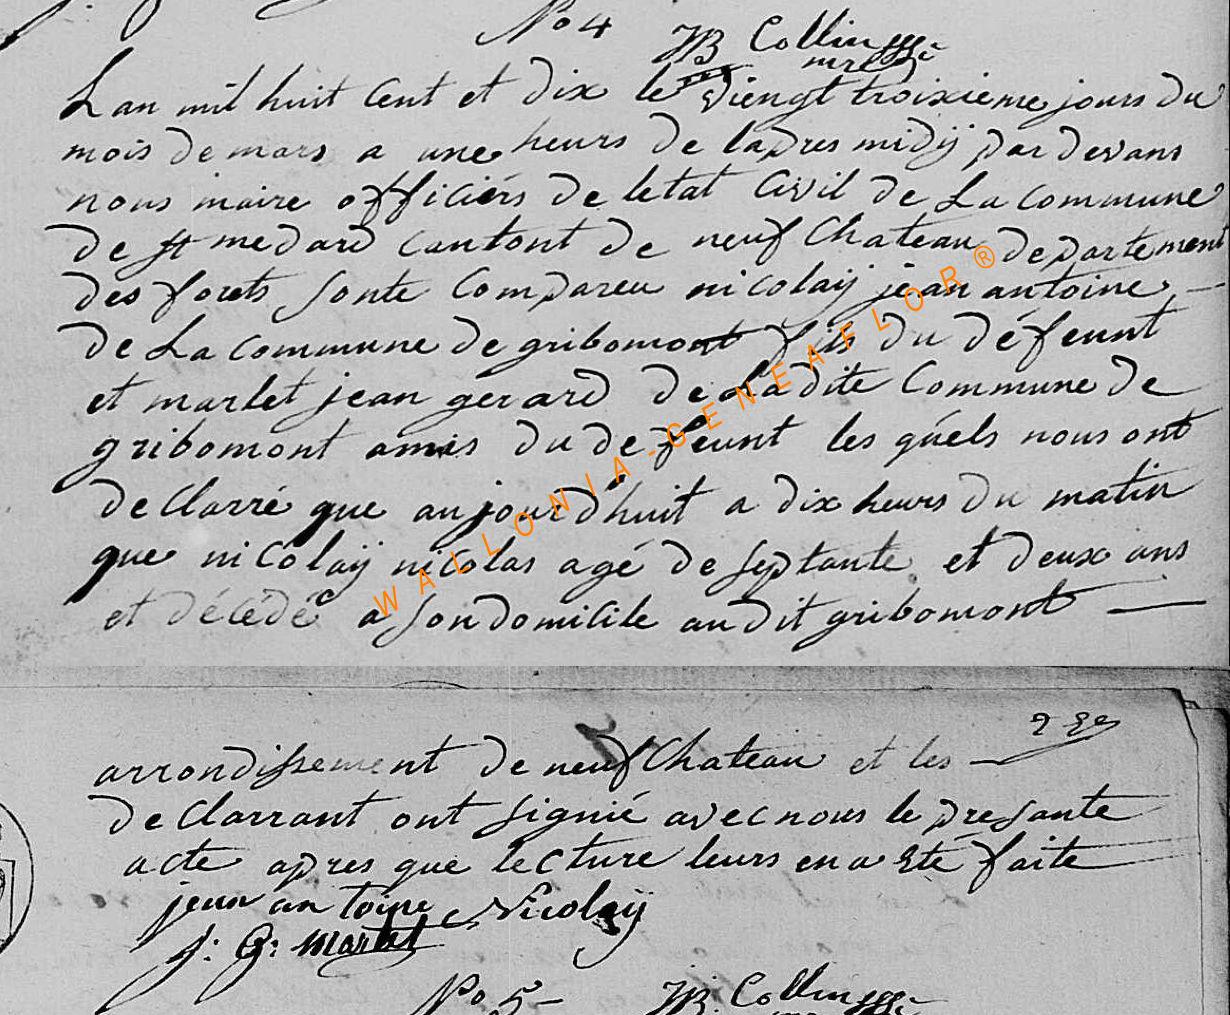 No 4
JB Collin
mre
Lan mil huit Cent et dix le viengt troixieme jours du
mois de mars a une heurs de lapres midÿ par devans
nous maire officiérs de letat Civil de La commune
de st medard cantont de neuf Chateau departement
des forets sonte Compareu nicolaÿ jean antoine
de La commune de gribomont fils du défeunt
et marlet jean gerard de Ladite Commune de
gribomont amis du defeunt les quels nous ont
declarré que aujourd'huit a dix heurs du matin
que nicolaÿ nicolas agé de septante et deux ans
et décédé a son domicile audit gribomont
arrondissement de neuf Chateau et les
declarrant ont signié avec nous le presante
acte apres que lecture leurs en a Eté faite
jean antoine Nicolaÿ
j: G: marlet
No 5
JB. Collin
WALLONIA-GENEAFLOR®